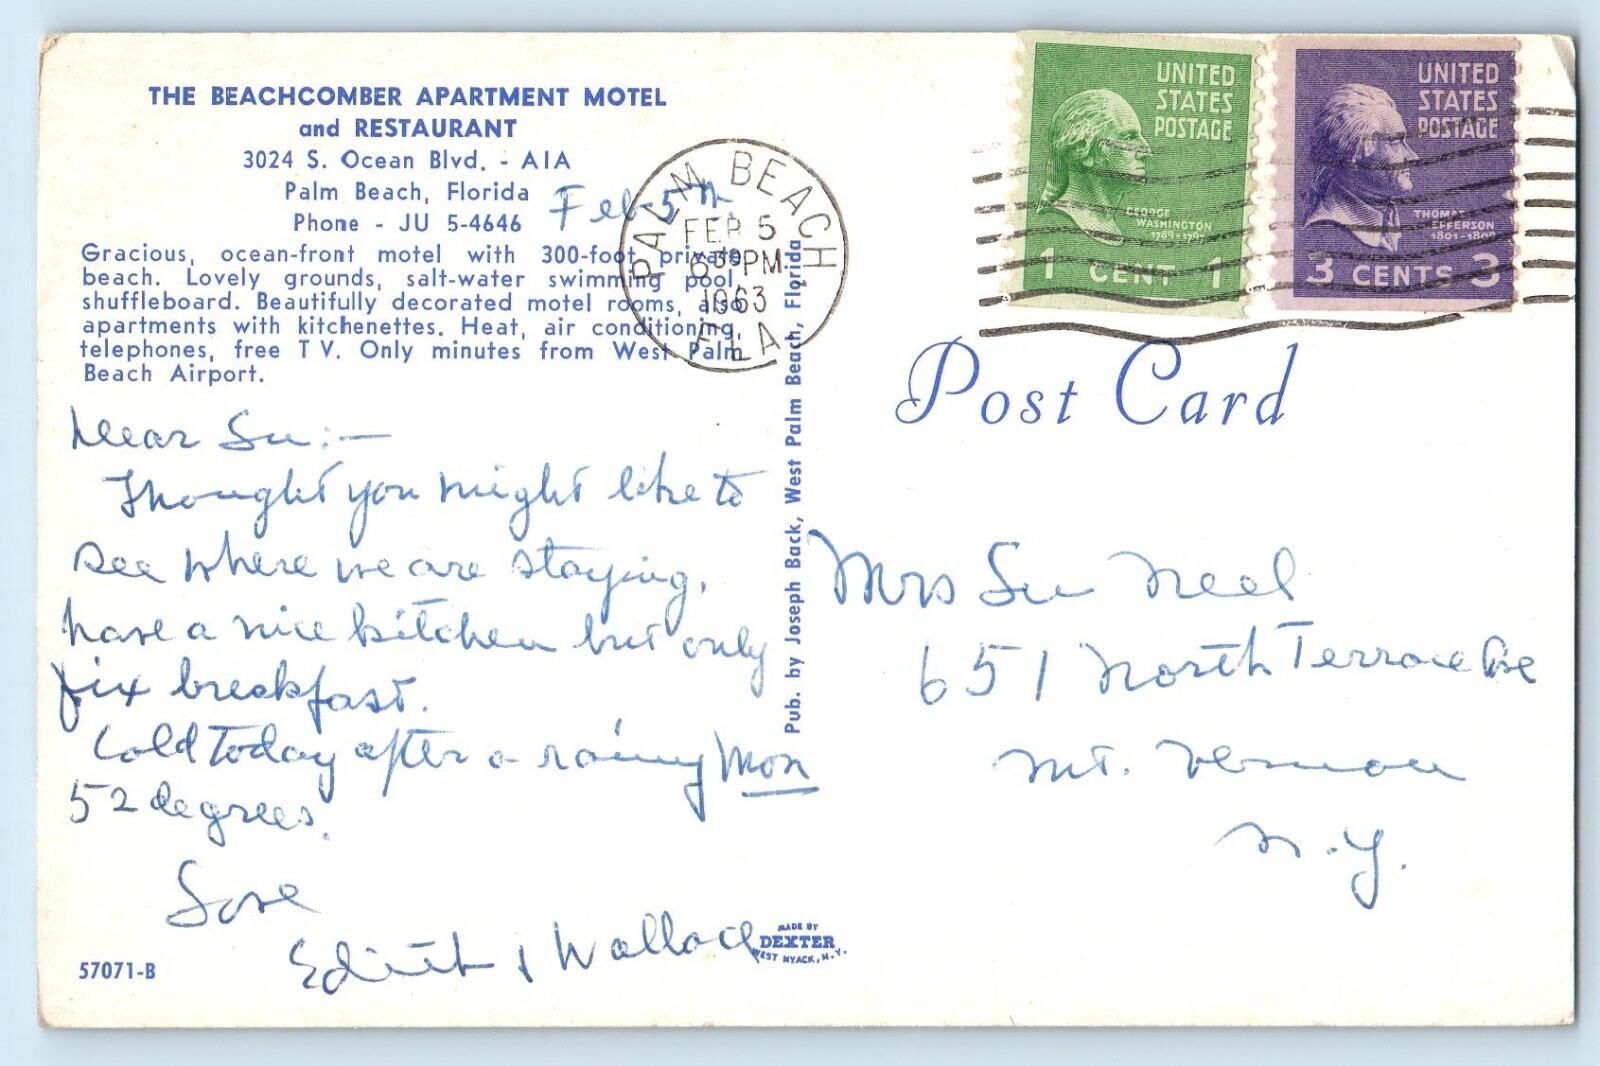 THE BEACHCOMBER APARTMENT MOTEL
and RESTAURANT
3024 S. Ocean Blvd. - AIA
Palm Beach, Florida
Phone - JU 5-4646
Gracious, ocean-front motel with 300-foot private
beach. Lovely grounds, salt-water swimming pool,
shuffleboard. Beautifully decorated motel rooms, and
apartments with kitchenettes. Heat, air conditioning,
telephones, free TV. Only minutes from West Palm
Beach Airport.
Feb-5th
Dear Su:—
Thought you might like to
see where we are staying,
have a nice kitchen but only
fix breakfast.
Cold today after a rainy Mon
52 degrees.
Love
Edith & Wallace
57071-B
Pub. by Joseph Back, West Palm Beach, Florida
MADE BY
DEXTER
WEST NYACK, N.Y.
PALM BEACH
FEB 5
6 30 PM
1963
FLA.
UNITED
STATES
POSTAGE
GEORGE
WASHINGTON
1789-1797
1 CENT 1
UNITED
STATES
POSTAGE
THOMAS
JEFFERSON
1801-1809
3 CENTS 3
Post Card
Mrs Su Neel
651 North Terrace Ave
Mt. Vernon
N.Y.